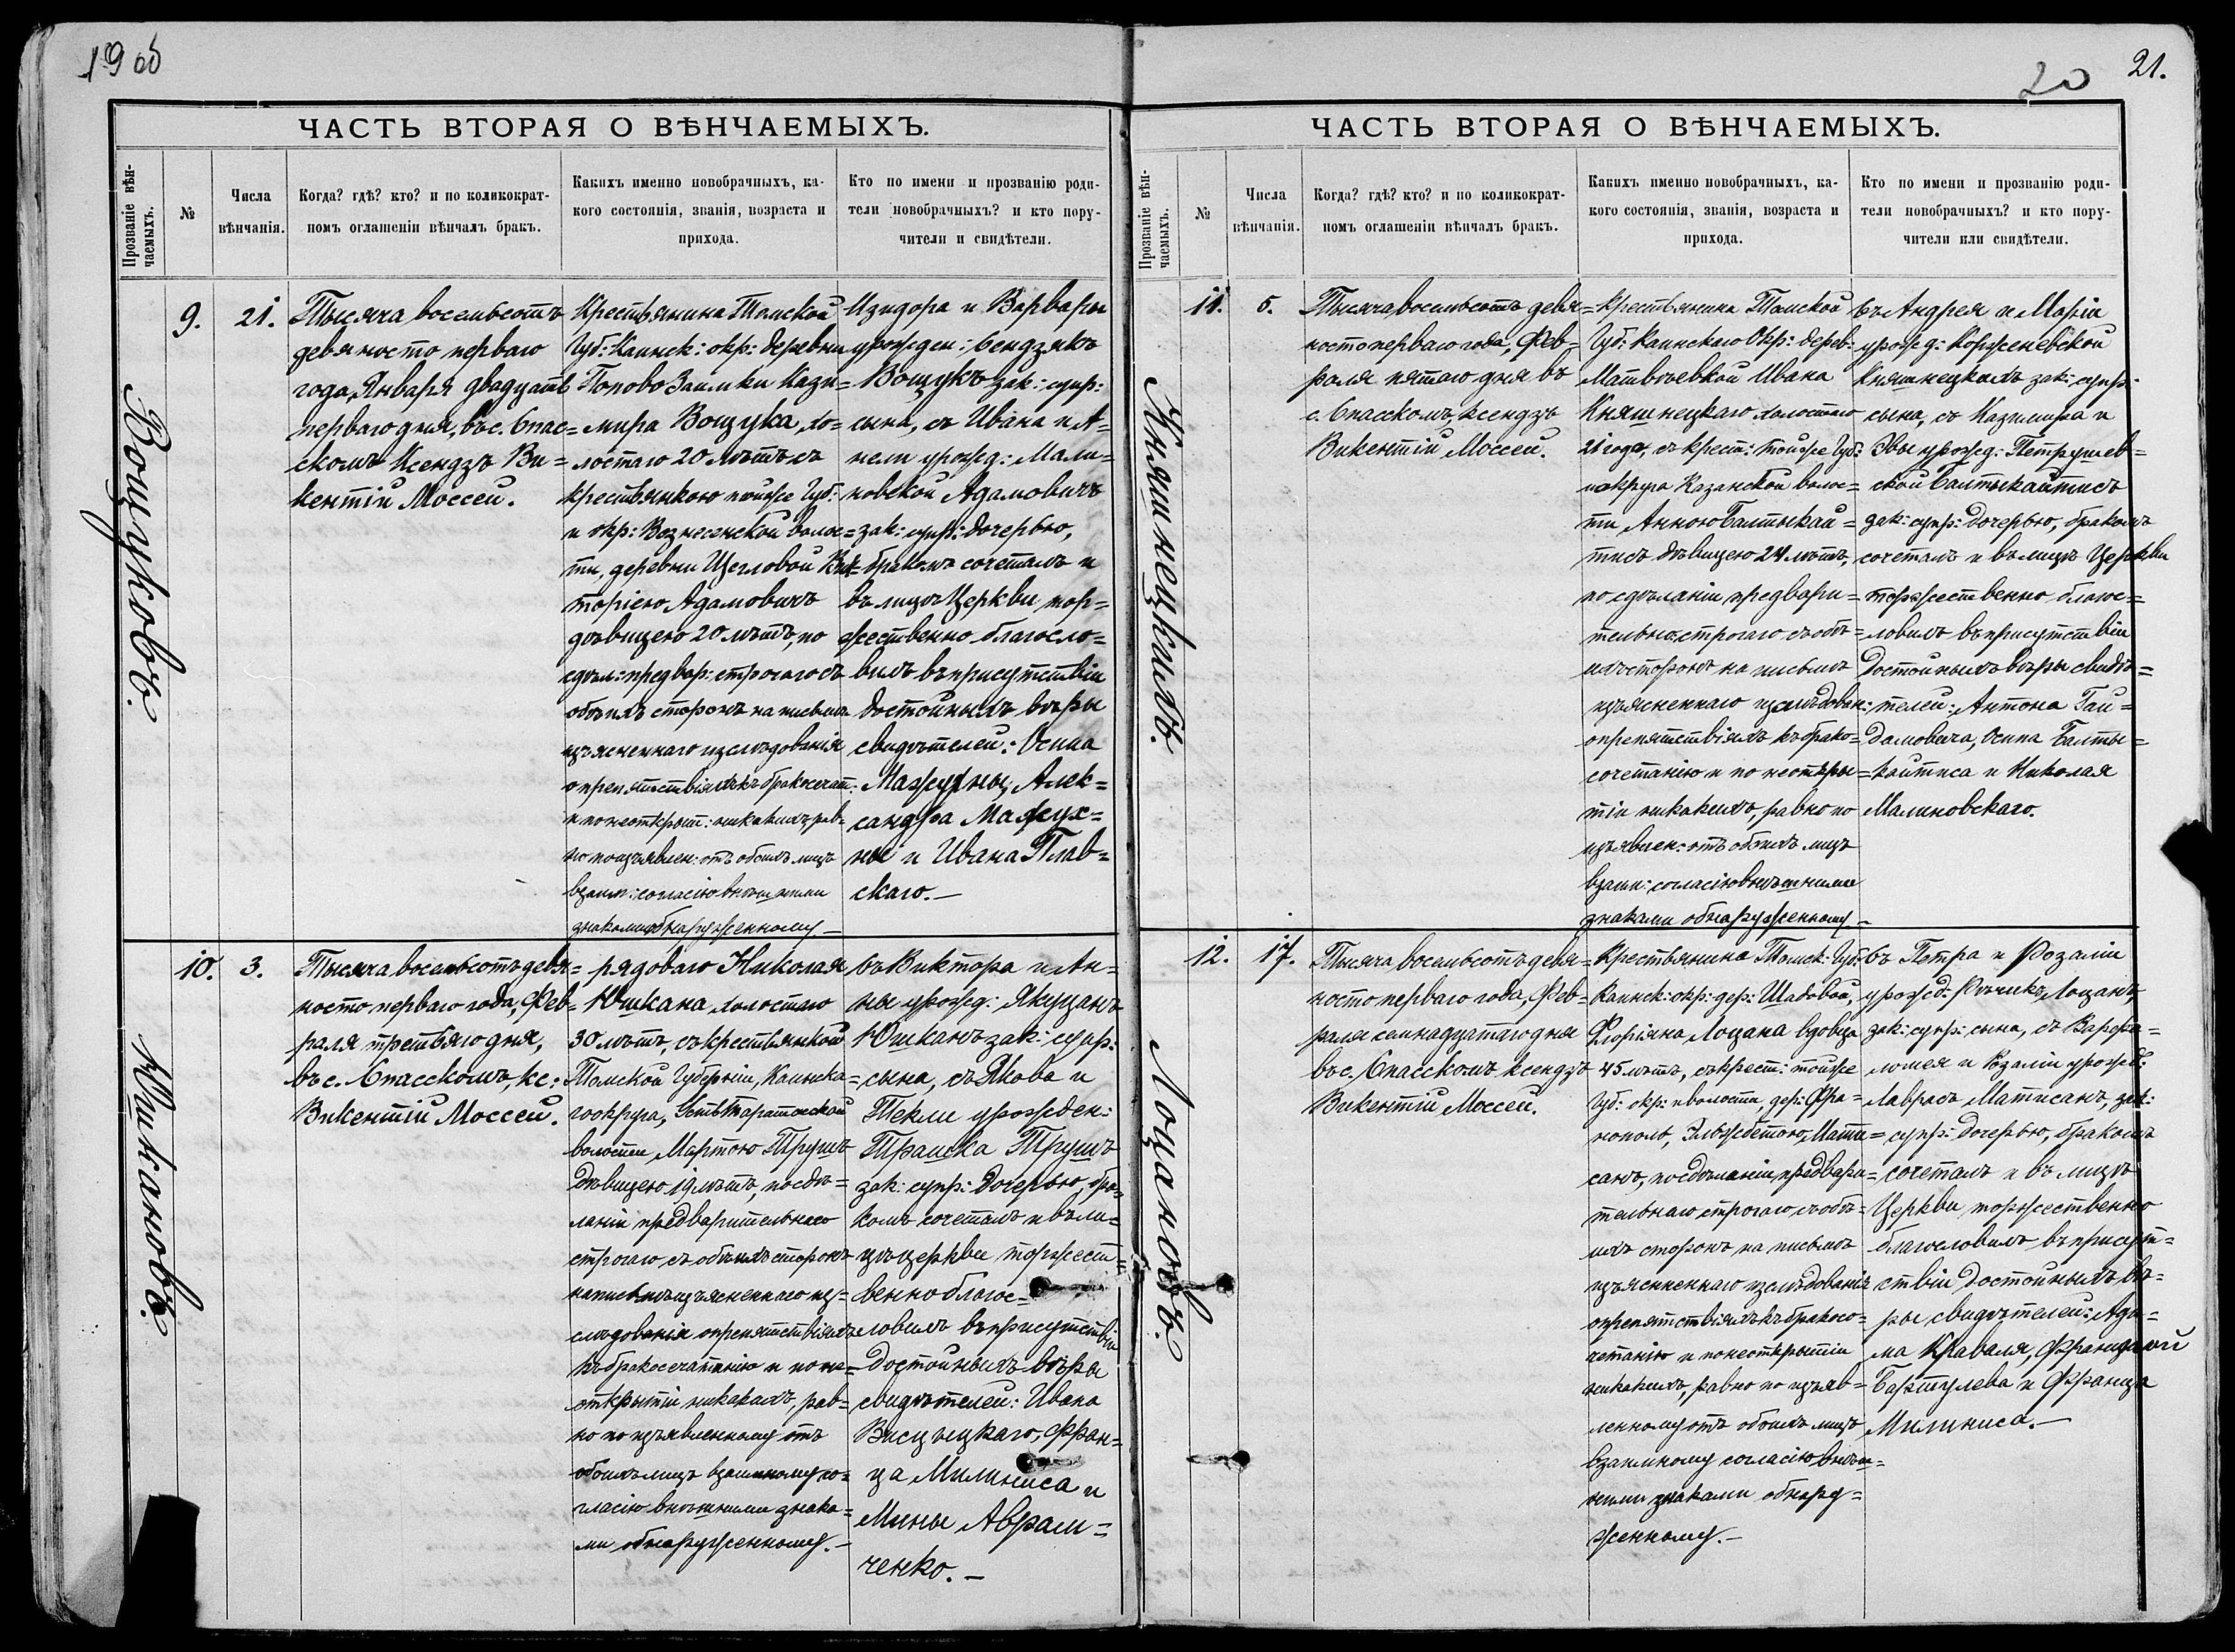 19 об
20
21.
ЧАСТЬ ВТОРАЯ О ВѢНЧАЕМЫХЪ.
Прозваніе вѣн-
чаемыхъ.
№
Числа
вѣнчанія.
Когда? гдѣ? кто? и по коликократ-
номъ оглашеніи вѣнчалъ бракъ.
Какихъ именно новобрачныхъ, ка-
кого состоянія, званія, возраста и
прихода.
Кто по имени и прозванію роди-
тели новобрачныхъ? и кто пору-
чители и свидѣтели.
Вощуковъ.
9.
21.
Тысяча восемьсотъ
девяносто перваго
года, Января двадцать
перваго дня, въ с. Спас=
скомъ Ксендзъ Ви=
кентій Моссей.
Крестьянина Томской
Губ: Каинск: окр: деревни
Попово Заимки Кази=
мира Вощука, хо=
лостаго 20 лѣтъ съ
крестьянкою тойже Губ:
и окр: Вознесенской волос=
ти, деревни Щегловой Вик=
торіею Адамовичъ
дѣвицею 20 лѣтъ, по
сдѣл: предвар: строгаго съ
обѣихъ сторонъ на письмѣ
изъясненнаго изслѣдованія
о препятствіяхъ къ бракосочет:
и по неоткрыт: никакихъ, рав=
но по изъявлен: отъ обоихъ лицъ
взаим: согласію внѣшними
знаками обнаруженному.—
Изидора и Варвары
урожден: Бендзякъ
Вощукъ зак: супр:
сына, съ Ивана и А=
нели урожд: Мали=
новской Адамовичъ
зак: супр: дочерью,
бракомъ сочеталъ и
въ лицѣ Церкви тор=
жественно благосло=
вилъ въ присутствіи
достойныхъ вѣры
свидѣтелей: Осипа
Мажухны, Алек=
сандра Мажух=
ны и Ивана Плав=
скаго.—
Юшкановъ.
10.
3.
Тысяча восемьсотъ девя=
носто перваго года, Фев=
раля третьяго дня,
въ с. Спасскомъ, кс:
Викентій Моссей.
рядоваго Николая
Юшкана холостаго
30 лѣтъ, съ крестьянкой
Томской Губерніи, Каинска=
го округа, Усть Тартасской
волости Мартою Трушъ
дѣвицею 19 лѣтъ, по сдѣ=
ланіи предварительнаго
строгаго съ обѣихъ сторонъ
на письмѣ изъясненнаго из=
слѣдованія о препятствіяхъ
къ бракосочетанію и по не=
открытіи никакихъ, рав=
но по изъявленному отъ
обоихъ лицъ взаимному со=
гласію внѣшними знака=
ми обнаруженному.—
съ Виктора и Ан=
ны урожд: Якуцанъ
Юшканъ зак: супр:
сына, съ Якова и
Текли урожден:
Транска Трушъ
зак: супр: дочерью, бра=
комъ сочеталъ и въ ли=
цѣ церкви торжест=
венно благос=
ловилъ въ присутствіи
достойныхъ вѣры
свидѣтелей: Ивана
Висцъцкаго, Фран=
ца Милиниса и
Мины Аврам=
ченко.—
ЧАСТЬ ВТОРАЯ О ВѢНЧАЕМЫХЪ.
Прозваніе вѣн-
чаемыхъ.
№
Числа
вѣнчанія.
Когда? гдѣ? кто? и по коликократ-
номъ оглашеніи вѣнчалъ бракъ.
Какихъ именно новобрачныхъ, ка-
кого состоянія, званія, возраста и
прихода.
Кто по имени и прозванію роди-
тели новобрачныхъ? и кто пору-
чители или свидѣтели.
Княшнецкихъ.
11.
5.
Тысяча восемьсотъ девя=
носто перваго года, Фев=
раля пятаго дня въ
с. Спасскомъ, ксендзъ
Викентій Моссей.
Крестьянина Томской
Губ: Каинскаго Окр: дерев:
Матвѣевкой Ивана
Княшнецкаго холостаго
21 года, съ крест: тойже Губ:
и округа Казанской волос=
ти Анною Балтыкай=
тисъ дѣвицею 24 лѣтъ,
по сдѣланіи предвари=
тельно, строгаго съ обѣ=
ихъ сторонъ на письмѣ
изъясненнаго изслѣдован:
о препятствіяхъ къ брако=
сочетанію и по неоткры=
тіи никакихъ, равно по
изъявлен: отъ обоихъ лицъ
взаим: согласію внѣшними
знаками обнаруженному.—
съ Андрея и Маріи
урожд: Корженевской
Княшнецкихъ зак: супр:
сына, съ Казимира и
Эвы урожд: Петрушев=
ской Балтыкайтисъ
зак: супр: дочерью, бракомъ
сочеталъ и въ лицѣ Церкви
торжественно благос=
ловилъ въ присутствіи
достойныхъ вѣры свидѣ=
телей: Антона Гай=
дамовича, Осипа Балты=
кайтиса и Николая
Малиновскаго.
Лоцановъ.
12.
17.
Тысяча восемьсотъ девя=
носто перваго года, Фев=
раля семнадцатаго дня
въ с. Спасскомъ ксендзъ
Викентій Моссей.
Крестьянина Томск: Губ:
Каинск: окр: дер: Шадовой,
Флоріяна Лоцана вдовца
45 лѣтъ, съ крест: тойже
Губ: окр: и волости, дер: Фра=
нополь, Эльжбетою, Мати=
санъ, по сдѣланіи предвари=
тельнаго строгаго съ обѣ=
ихъ сторонъ на письмѣ
изъясненнаго изслѣдованія
о препятствіяхъ къ бракосо=
четанію и по неоткрытіи
никакихъ, равно по изъяв=
ленному отъ обоихъ лицъ
взаимному согласію внѣш=
ними знаками обнару=
женному.—
съ Петра и Розаліи
урожд: Рѣчикъ, Лоцанъ,
зак: супр: сына, съ Варфо=
ломея и Розаліи урожд:
Лаврасъ Матисанъ, зак:
супр: дочерью, бракомъ
сочеталъ и въ лицѣ
Церкви торжественно
благословилъ въ присут=
ствіи достойныхъ вѣ=
ры свидѣтелей: Ада=
ма Краваля,
Бартулева и Франца
Милиниса.—